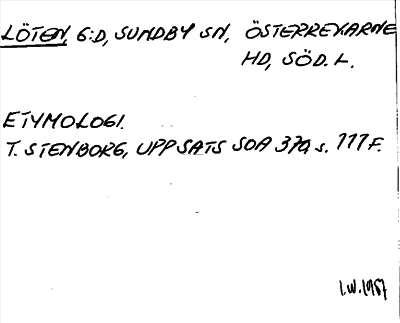 LÖTEN, 6:D, SUNDBY SN, ÖSTERREKARNE
HD, SÖD. L.
ETYMOLOGI.
T. STENBORG, UPPSATS SOA 37a s. 111 F.
I.W. 1987